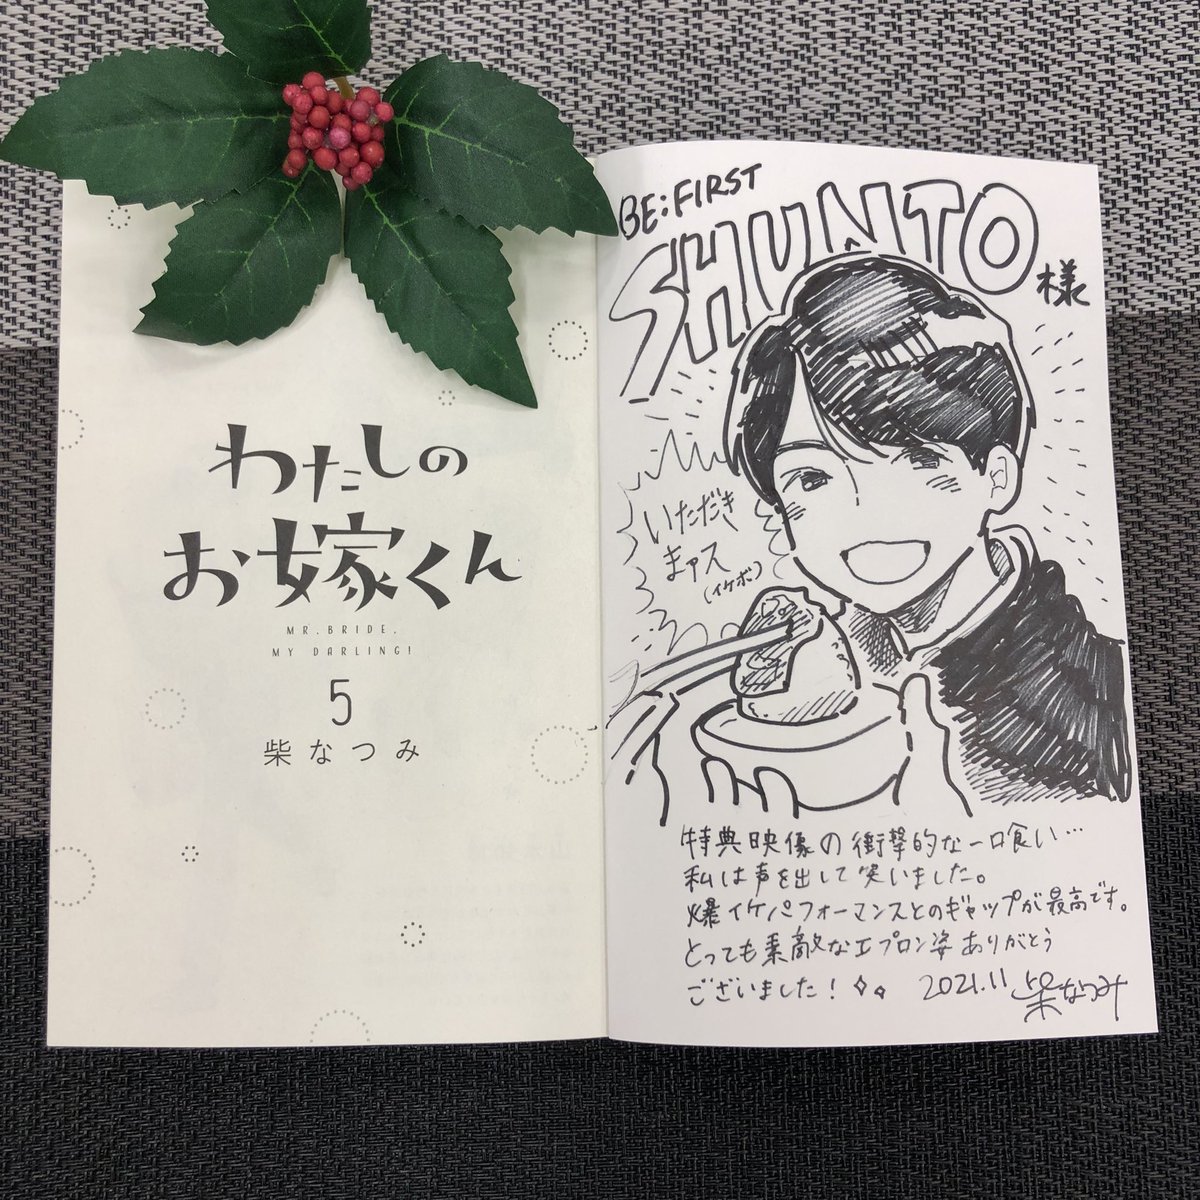 わたしの
お嫁くん
MR. BRIDE,
MY DARLING!
5
柴なつみ
BE:FIRST
SHUNTO
様
いただき
まァス
(イケボ)
特典映像の衝撃的な一口喰い…
私は声を出して笑いました。
爆イケパフォーマンスとのギャップが最高です。
とっても素敵なエプロン姿ありがとう
ございました!
2021.11 柴なつみ